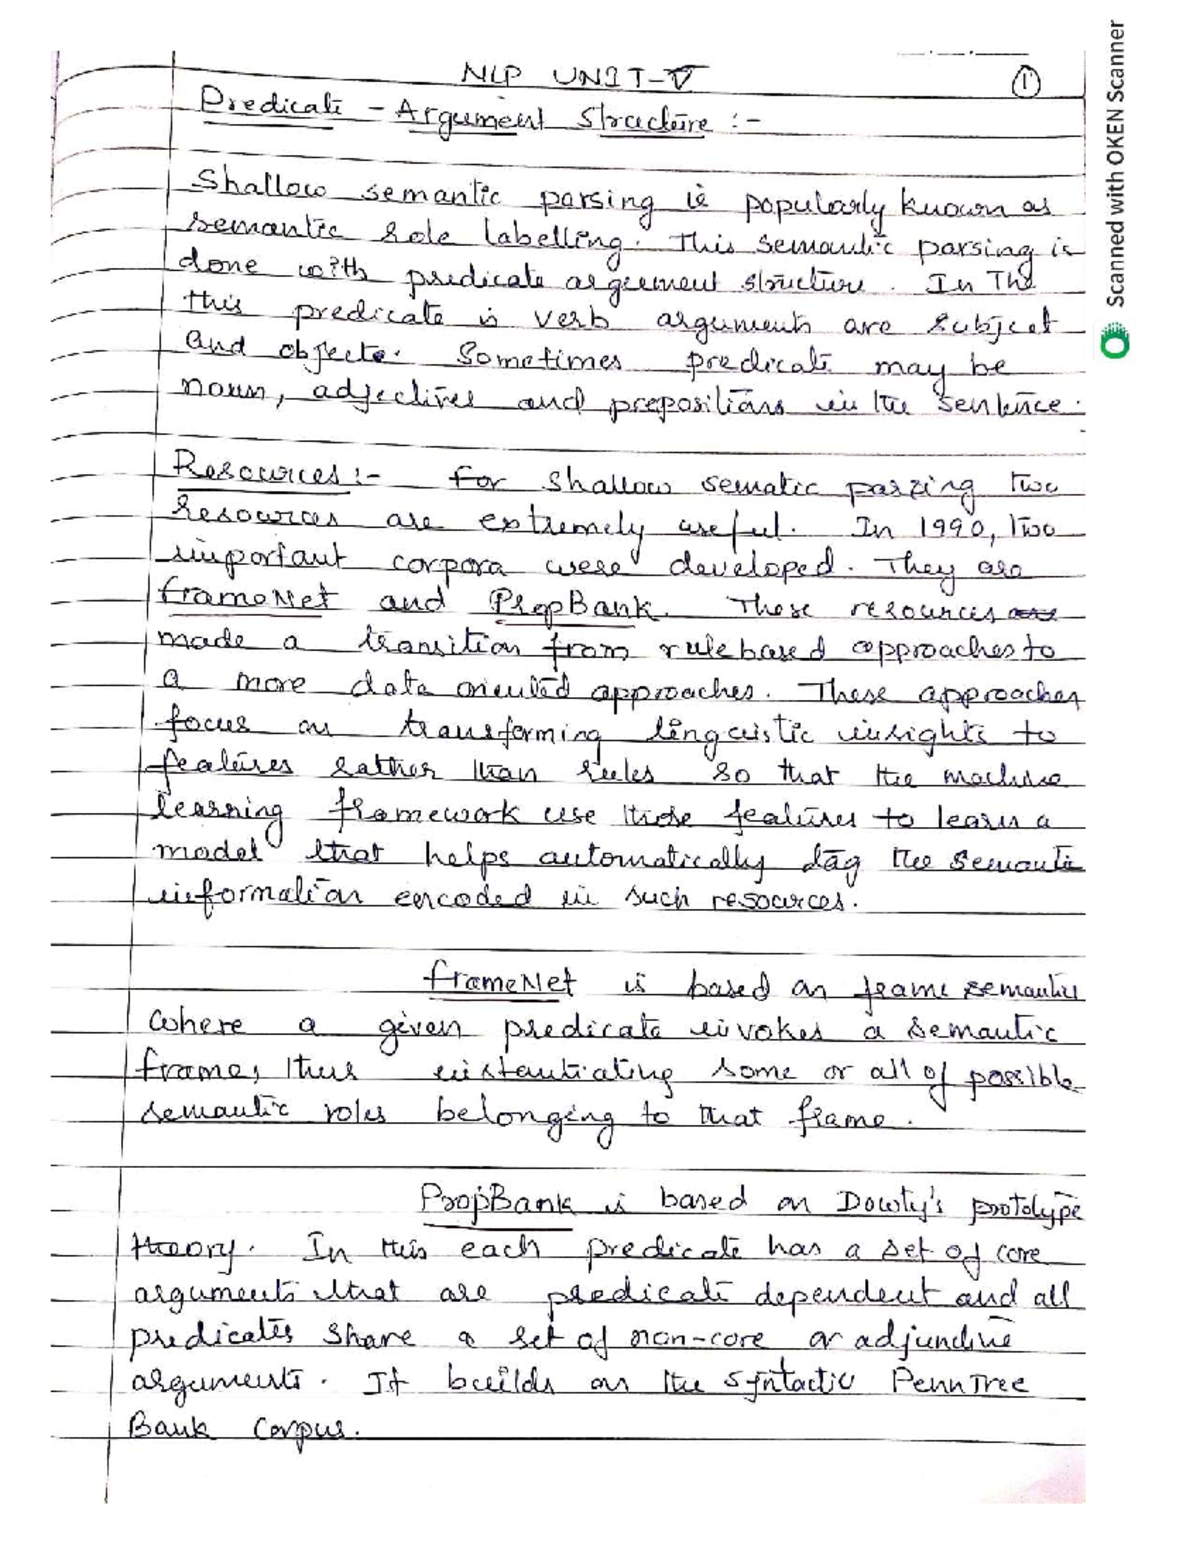 NLP UNIT-V
1
Predicate - Argument Structure :-
Shallow semantic parsing is popularly known as
semantic role labelling. This semantic parsing is
done with predicate arguement structure. In The
this predicate is verb arguments are subject
and objects. Sometimes predicate may be
noun, adjectives and prepositions in the sentence.
Resources :- For shallow sematic parsing two
resources are extremely useful. In 1990, two
important corpora were developed. They are
frameNet and PropBank. These resources are
made a transition from rulebased approaches to
a more data oriented approaches. These approaches
focus on transforming linguistic insights to
features rather than rules so that the machine
learning framework use those features to learn a
model that helps automatically tag the semantic
information encoded in such resources.
frameNet is based on frame semantics
where a given predicate invokes a semantic
frame, thus instantiating some or all of possible
semantic roles belonging to that frame.
PropBank is based on Dowty's prototype
theory. In this each predicate has a set of core
arguments that are predicate dependent and all
predicates share a set of non-core or adjunctive
arguments. It builds on the syntactic PennTree
Bank Corpus.
Scanned with OKEN Scanner